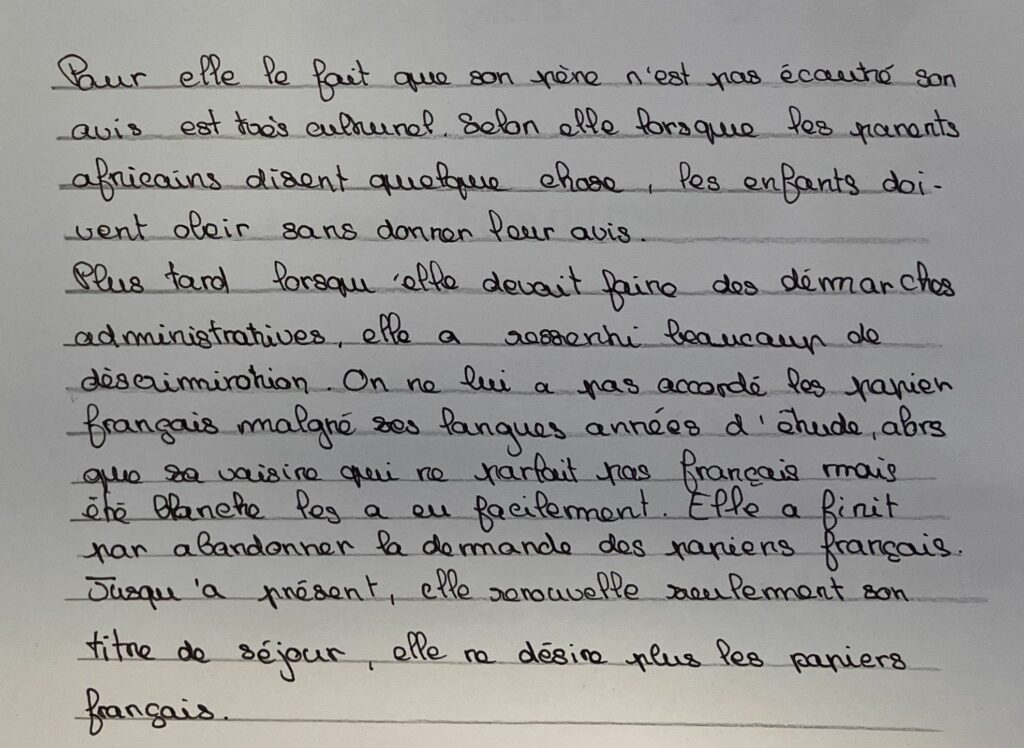 Pour elle le fait que son père n'est pas écouté son
avis est très culturel. Selon elle lorsque les parents
africains disent quelque chose, les enfants doi-
vent obeir sans donner leur avis.
Plus tard lorsqu'elle devait faire des démarches
administratives, elle a ressenti beaucoup de
déscrimination. On ne lui a pas accordé les papier
français malgré ses longues années d'étude, alors
que sa voisine qui ne parlait pas français mais
été blanche les a eu facilement. Elle a finit
par abandonner la demande des papiers français.
Jusqu'a présent, elle renouvelle seulement son
titre de séjour, elle ne désire plus les papiers
français.